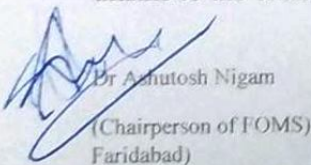 Dr Ashutosh Nigam
(Chairperson of FOMS)
Faridabad)